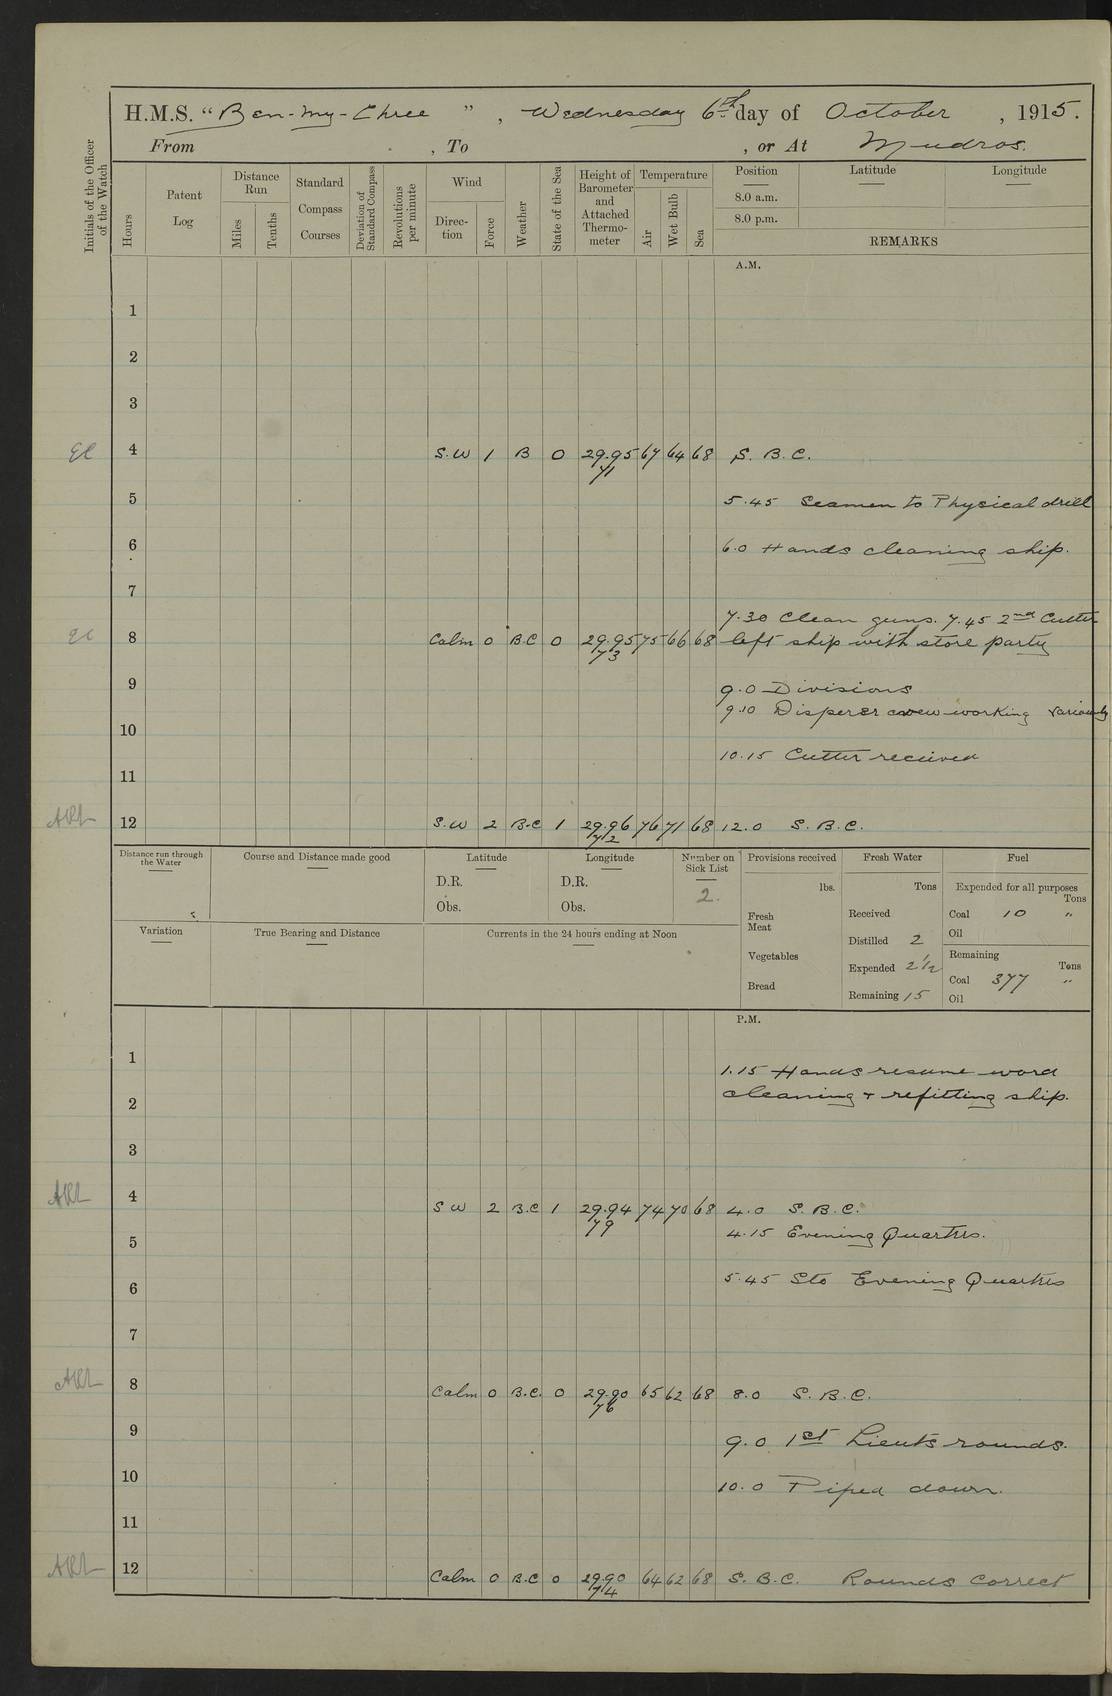 H.M.S. "Ben-my-Chree", Wednesday 6th day of October, 1915.
From , To , or At Mudros.
Initials of the Officer of the Watch
Hours
Patent Log
Distance Run
Miles
Tenths
Standard Compass Courses
Deviation of Standard Compass
Revolutions per minute
Wind
Direction
Force
Weather
State of the Sea
Height of Barometer and Attached Thermometer
Temperature
Air
Wet Bulb
Sea
Position
Latitude
Longitude
8.0 a.m.
8.0 p.m.
REMARKS
A.M.
1
2
3
4 S.W 1 B 0 29.95 67 64 68 S. B. C.
71
5 5.45 Seamen to Physical drill
6 6.0 Hands cleaning ship.
7
7.30 Clean guns. 7.45 2nd Cutter
8 Calm 0 B.C 0 29.95 75 66 68 left ship with store party
73
9 9.0 Divisions
9.10 working variously
10
10.15 Cutter
11
12 S.W 2 B.C 1 29.96 76 71 68 12.0 S. B. C.
72
Distance run through the Water
Course and Distance made good
Latitude
D.R.
Obs.
Longitude
D.R.
Obs.
Number on Sick List
2.
Provisions received
lbs.
Fresh Meat
Vegetables
Bread
Fresh Water
Tons
Received
Distilled 2
Expended 2 1/2
Remaining 15
Fuel
Expended for all purposes
Tons
Coal 10 "
Oil
Remaining
Tons
Coal 377 "
Oil
Variation
True Bearing and Distance
Currents in the 24 hours ending at Noon
P.M.
1 1.15 Hands resume
2 cleaning + refitting ship.
3
4 S W 2 B.C 1 29.94 74 70 68 4.0 S. B. C.
79
4.15 Evening Quarters.
5
6 5.45 Sto Evening Quarters
7
8 Calm 0 B.C. 0 29.90 65 62 68 8.0 S. B. C.
76
9 9.0 1st Lieuts rounds.
10 10.0 Piped down.
11
12 Calm 0 B.C 0 29.90 64 62 68 S. B. C. Rounds correct
74